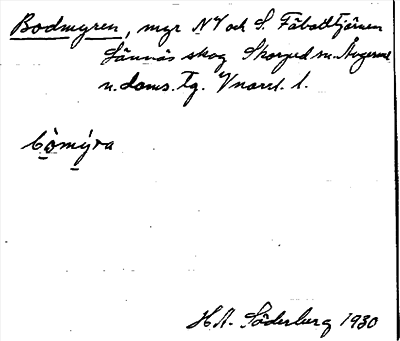 Bodmyren, myr NV och S. Fäbodtjärnen
Lännäs skog Skorped sn. Ångerml.
n. doms. Tg. Vnorrl. l.
bòmýra
H.A. Söderberg 1930